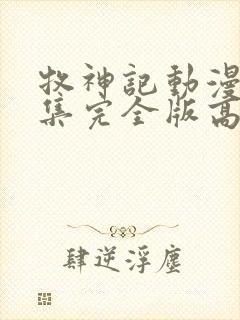 牧神記動漫
集完全版高
肆逆浮塵